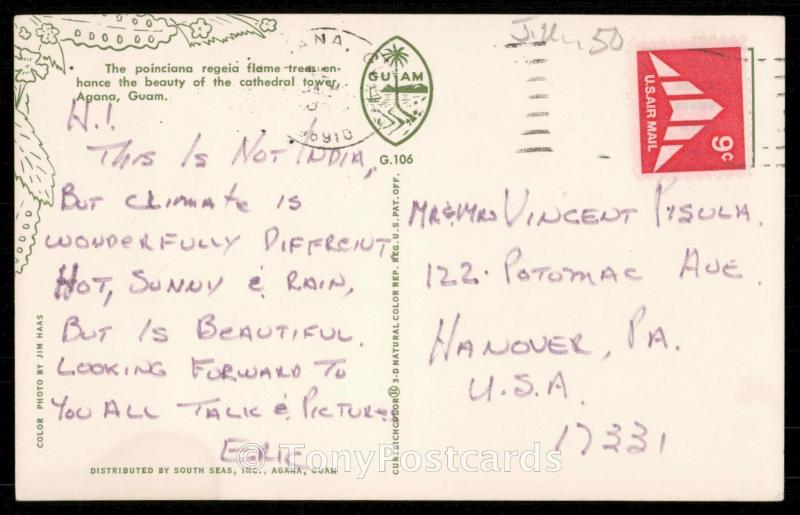 The poinciana regeia flame trees en-
hance the beauty of the cathedral tower,
Agana, Guam.
GUAM
G.106
U.S. AIR MAIL
9c
AGANA, GU
96910
H.I.
THIS IS NOT INDIA,
BUT CLIMATE IS
WONDERFULLY DIFFREINT
HOT, SUNNY & RAIN,
BUT IS BEAUTIFUL.
LOOKING FORWARD TO
YOU ALL TALK & PICTURES
MR & MRS VINCENT PYSULA.
122. POTOMAC AVE.
HANOVER, PA.
U.S.A.
17331
COLOR PHOTO BY JIM HAAS
CURTEICHCOLOR® 3-D NATURAL COLOR REP. REG. U.S. PAT. OFF.
DISTRIBUTED BY SOUTH SEAS, INC., AGANA, GUAM
© TonyPostcards